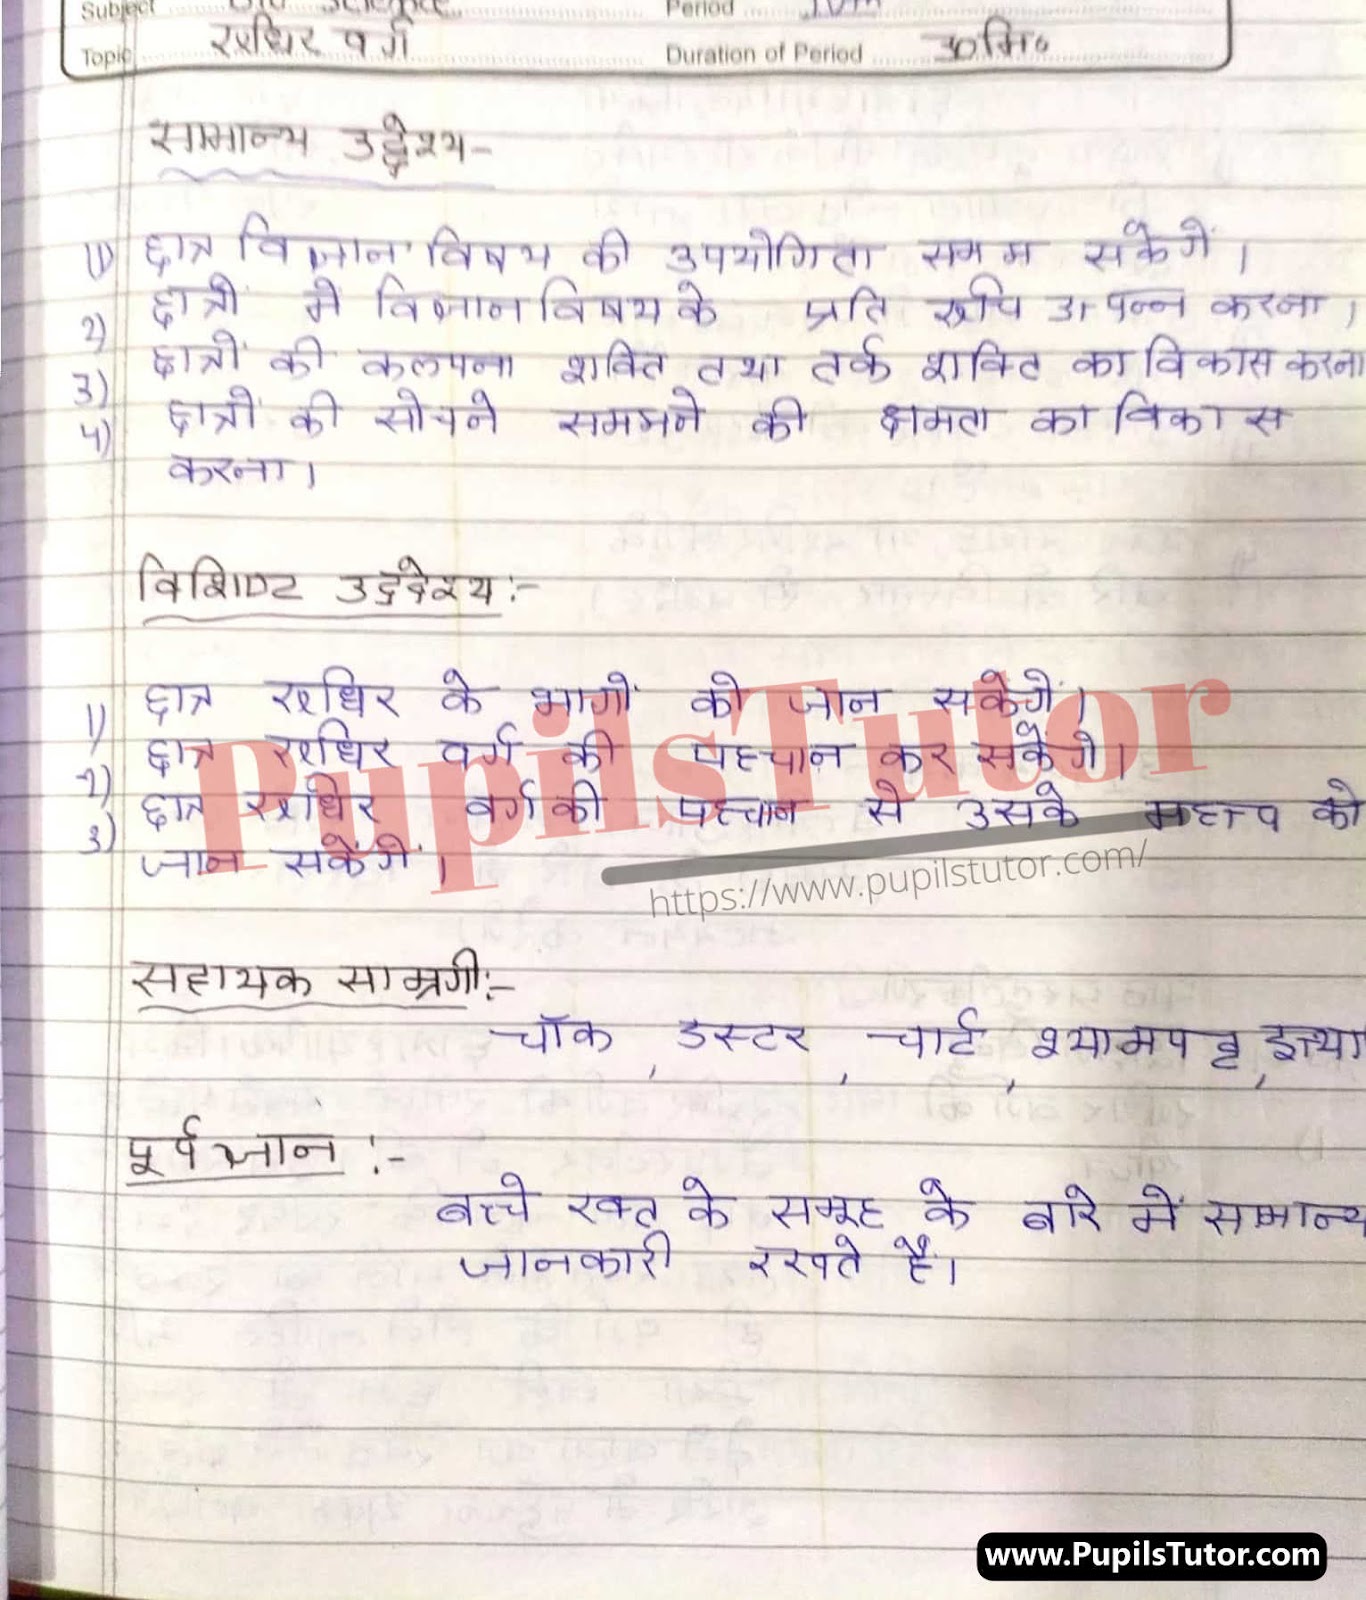 Subject Science Period IVth
Topic रुधिर वर्ग Duration of Period 30 मि०
सामान्य उद्देश्य-
1) छात्र विज्ञान विषय की उपयोगिता समझ सकेगें।
2) छात्रों में विज्ञान विषय के प्रति रूचि उत्पन्न करना।
3) छात्रों की कल्पना शक्ति तथा तर्क शक्ति का विकास करना
4) छात्रों की सोचने समझने की क्षमता का विकास
करना।
विशिष्ट उद्देश्य:-
1) छात्र रुधिर के भागों को जान सकेगें।
2) छात्र रुधिर वर्ग की पहचान कर सकेंगे।
3) छात्र रुधिर वर्ग की पहचान से उसके महत्त्व को
जान सकेंगें।
PupilsTutor
https://www.pupilstutor.com/
सहायक साम्रगी:-
चॉक, डस्टर, चार्ट, श्यामपट्ट, इत्या
पूर्व ज्ञान :-
बच्चे रक्त के समूह के बारे में सामान्य
जानकारी रखते हैं।
www.PupilsTutor.com